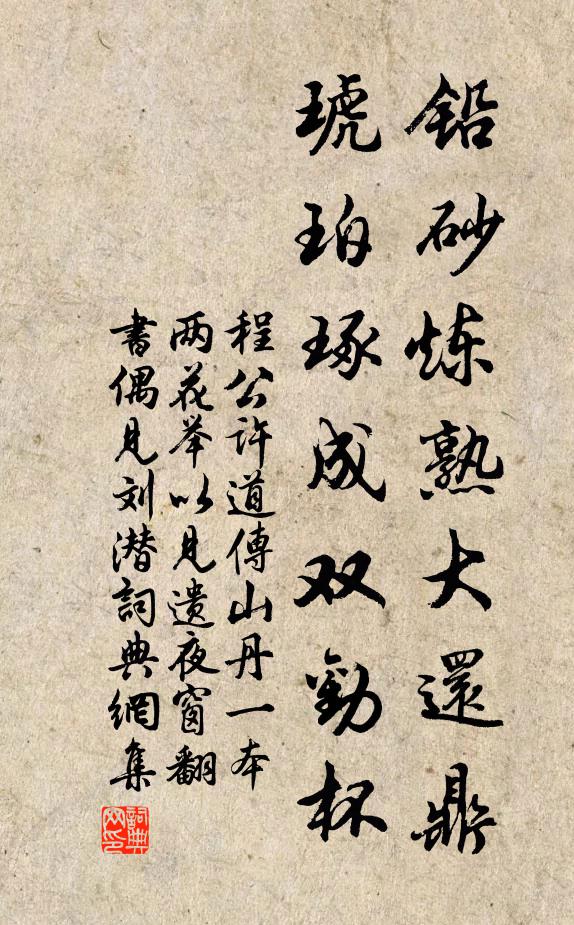 铅砂炼熟大還鼎
琥珀琢成双勸杯
程公许道傳山丹一本
两花举以見遗夜窗翻
書偶見刘潜詞典網集
詞典
网印